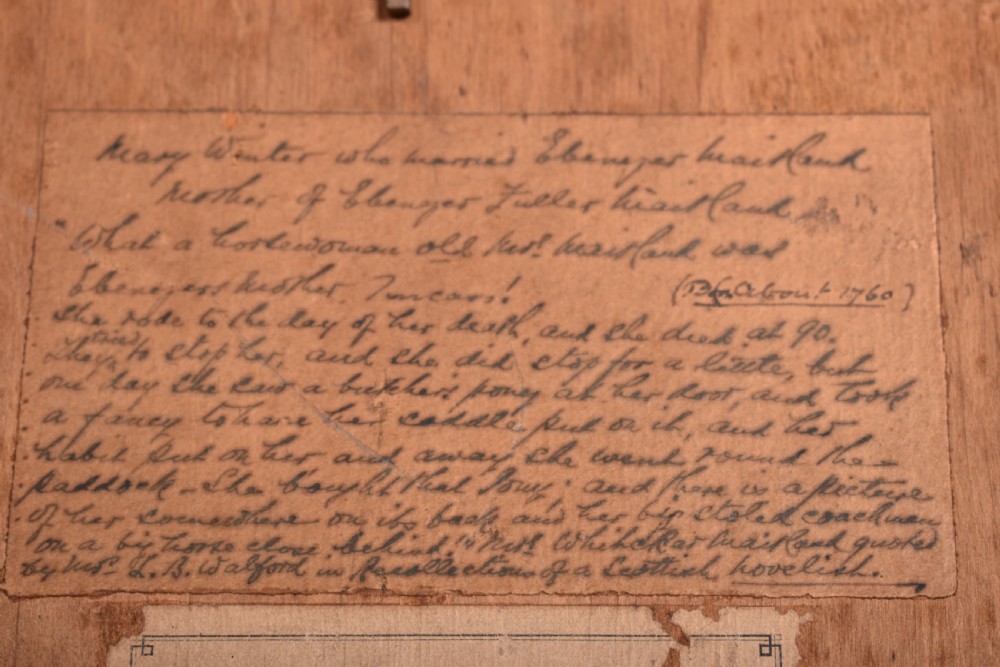 Mary Winter who married Ebenezer Maitland
Mother of Ebenezer Fuller Maitland
"What a horsewoman old Mrs. Maitland was
Ebenezers Mother I mean! ( about 1760)
She rode to the day of her death, and she died at 90.
They tried to stop her, and she did stop for a little, but
one day she saw a butchers pony at her door, and took
a fancy to have her saddle put on it, and her
habit put on her and away she went round the
paddock - She bought that Pony: and there is a picture
of her somewhere on its back and her big stolid coachman
on a big horse close behind." Mrs. Maitland quoted
by Mrs. L. B. Walford in Recollections of a Scottish novelist.